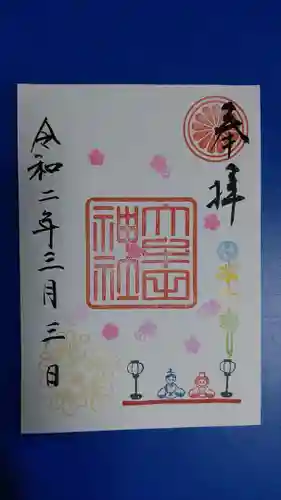 奉拝
神社
令和二年三月三日